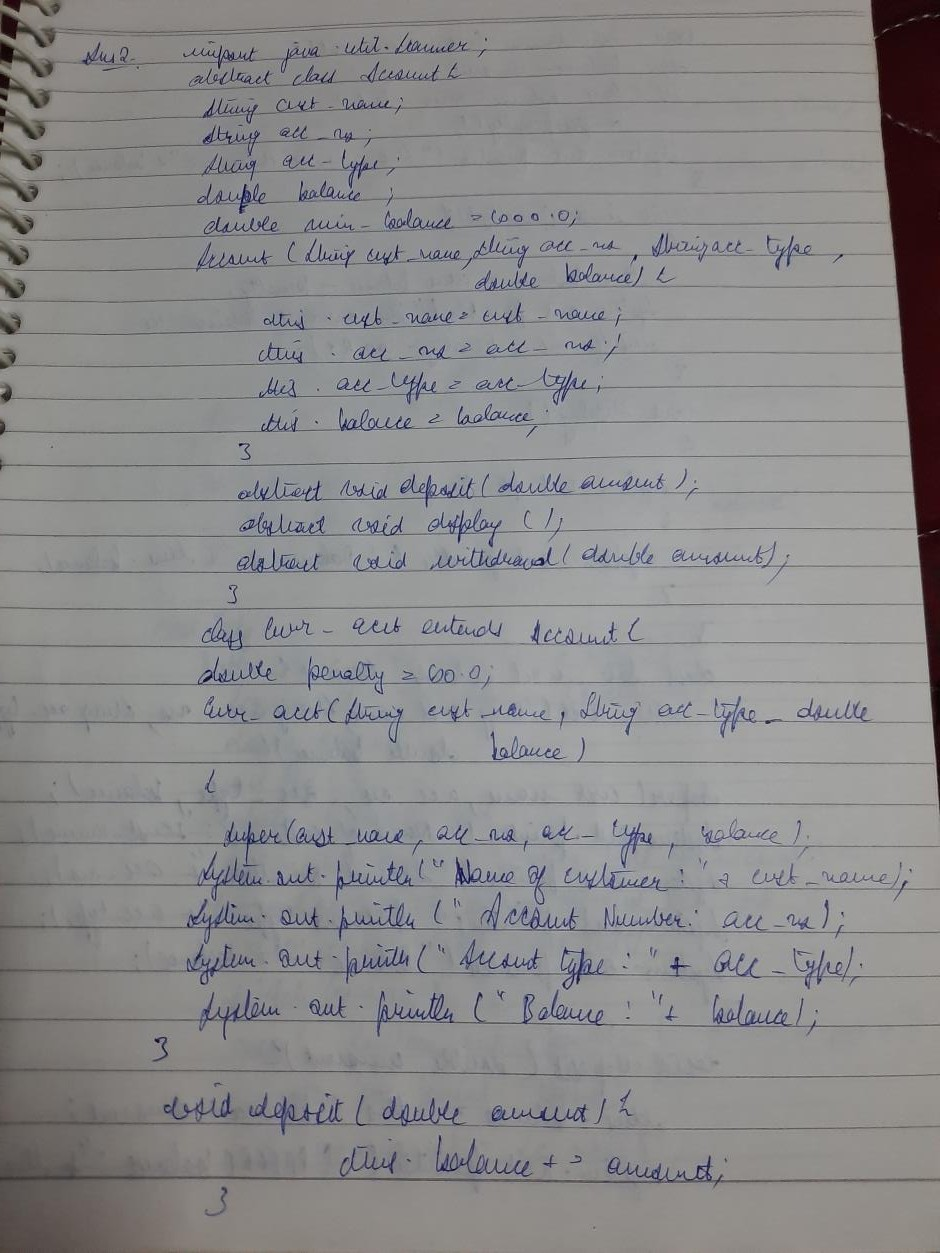 Ans 2. import java.util.Scanner;
abstract class Account {
String cust_name;
String acc_no;
String acc_type;
double balance;
double min_balance = 1000.0;
Account (String cust_name, String acc_no, String acc_type,
double balance) {
this.cust_name = cust_name;
this.acc_no = acc_no;
this.acc_type = acc_type;
this.balance = balance;
}
abstract void deposit(double amount);
abstract void display ();
abstract void withdrawal(double amount);
}
class Curr_acct extends Account {
double penalty = 50.0;
Curr_acct(String cust_name, String acc_type_ double
balance)
{
super(cust_name, acc_no, acc_type, balance);
System.out.println("Name of customer: " + cust_name);
System.out.println (": Account Number: acc_no);
System.out.println("Account type: " + acc_type);
System.out.println ("Balance: " + balance);
}
void deposit(double amount) {
this.balance += amount;
}